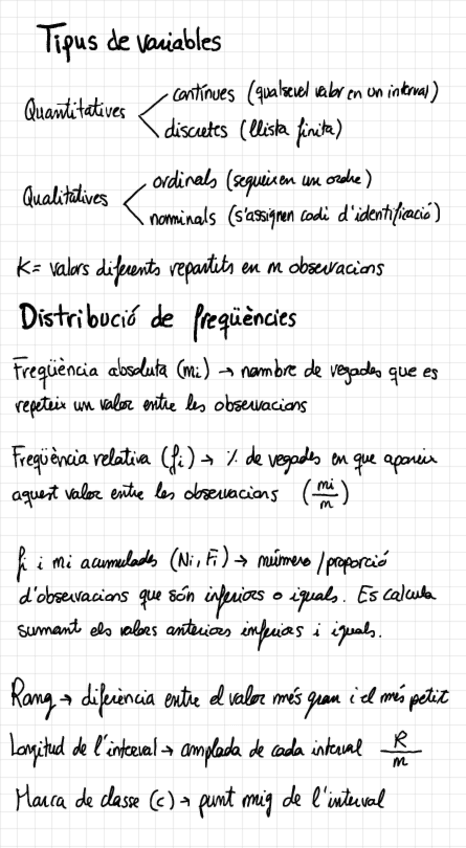 Tipus de variables
Quantitatives
contínues (qualsevol valor en un interval)
discretes (llista finita)
Qualitatives
ordinals (segueixen un ordre)
nominals (s'assignen codi d'identificació)
K = valors diferents repartits en n observacions
Distribució de freqüències
Freqüència absoluta (ni) → nombre de vegades que es
repeteix un valor entre les observacions
Freqüència relativa (fi) → % de vegades en que apareix
aquest valor entre les observacions (ni/n)
fi i ni acumulades (Ni, Fi) → número/proporció
d'observacions que són inferiors o iguals. Es calcula
sumant els valors anteriors inferiors i iguals.
Rang → diferència entre el valor més gran i el més petit
Longitud de l'interval → amplada de cada interval R/n
Marca de classe (c) → punt mig de l'interval